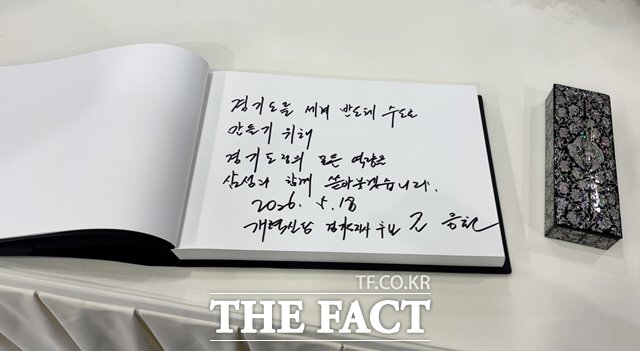 경기도를 세계 반도체 수도로
만들기 위해
경기도정의 모든 역량을
삼성과 함께 쏟아붓겠습니다.
2026. 5. 18
개혁신당 경기지사 후보 조 응천
TF.CO.KR
THE FACT